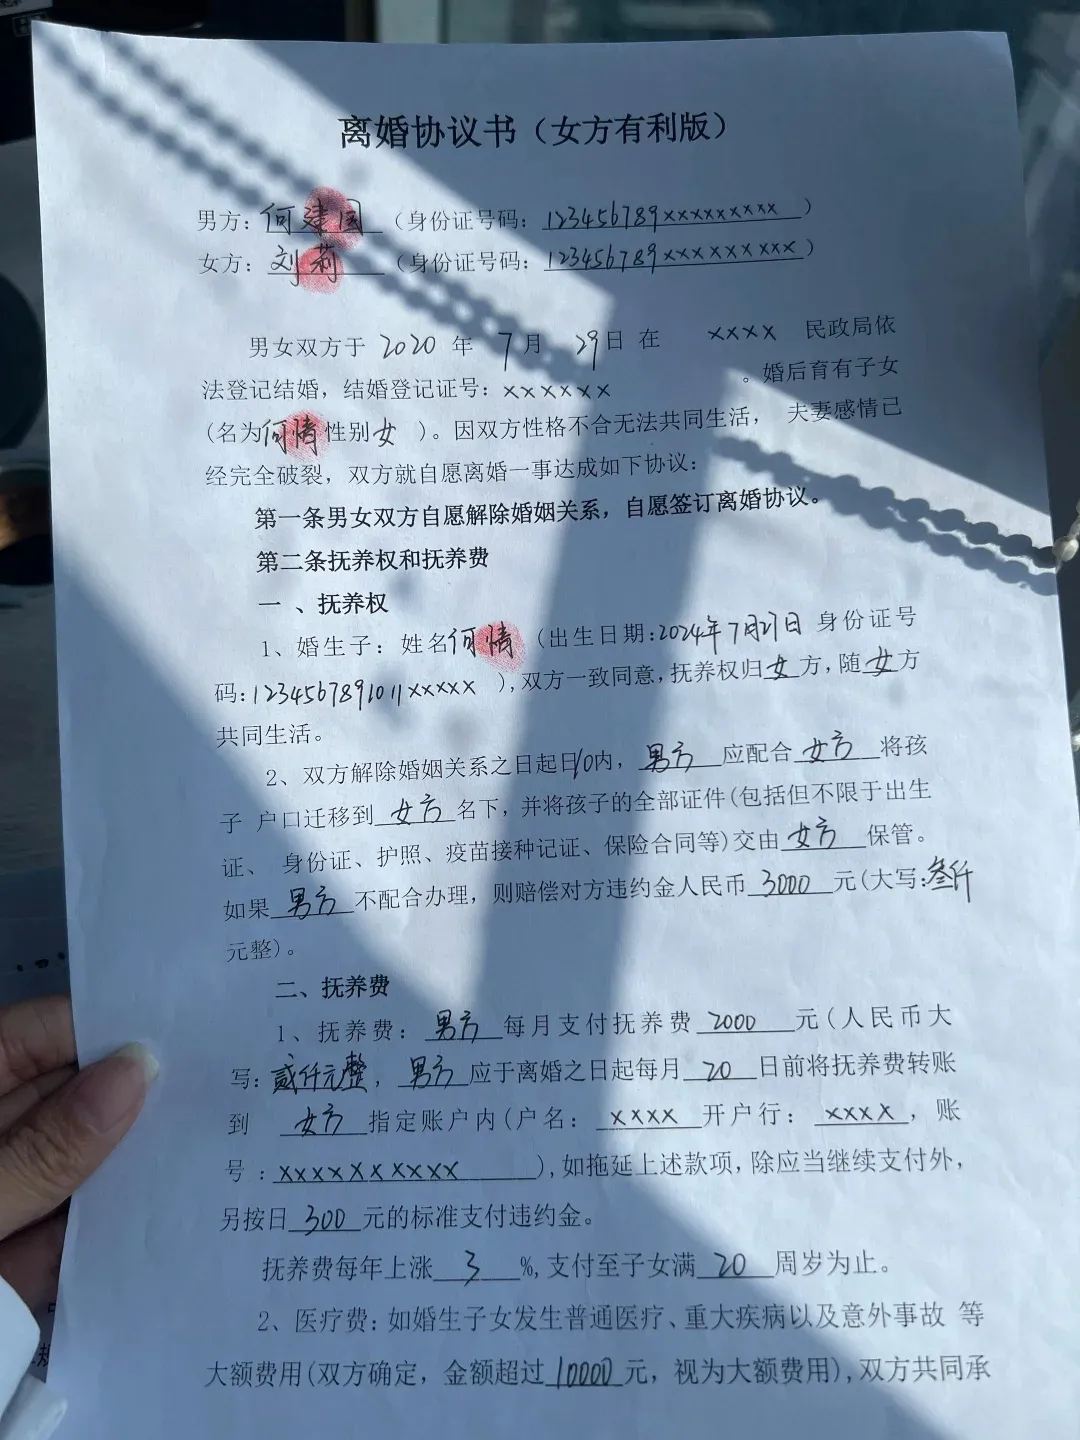 离婚协议书（女方有利版）
男方：何建国（身份证号码：123456789xxxxxxxxx）
女方：刘莉（身份证号码：123456789xxxxxxxxx）
男女双方于 2020 年 7月 29日 在 xxxx 民政局依
法登记结婚，结婚登记证号：xxxxxx 。婚后育有子女
(名为何情性别女 )。因双方性格不合无法共同生活， 夫妻感情已
经完全破裂，双方就自愿离婚一事达成如下协议：
第一条男女双方自愿解除婚姻关系，自愿签订离婚协议。
第二条抚养权和抚养费
一 、抚养权
1、婚生子：姓名何情（出生日期:2024年7月27日 身份证号
码:1234567891011xxxxx )，双方一致同意，抚养权归女方，随女方
共同生活。
2、双方解除婚姻关系之日起日10内，男方应配合女方将孩
子 户口迁移到女方名下，并将孩子的全部证件(包括但不限于出生
证、 身份证、护照、疫苗接种记证、保险合同等)交由女方保管。
如果男方不配合办理，则赔偿对方违约金人民币3000元(大写:叁仟
元整)。
二、抚养费
1、抚养费：男方每月支付抚养费2000元(人民币大
写：贰仟元整，男方应于离婚之日起每月20日前将抚养费转账
到 女方指定账户内(户名：xxxx开户行：xxxx，账
号：xxxxxxxxxxx)，如拖延上述款项，除应当继续支付外，
另按日300元的标准支付违约金。
抚养费每年上涨3%，支付至子女满20周岁为止。
2、医疗费：如婚生子女发生普通医疗、重大疾病以及意外事故 等
大额费用(双方确定，金额超过10000元，视为大额费用)，双方共同承